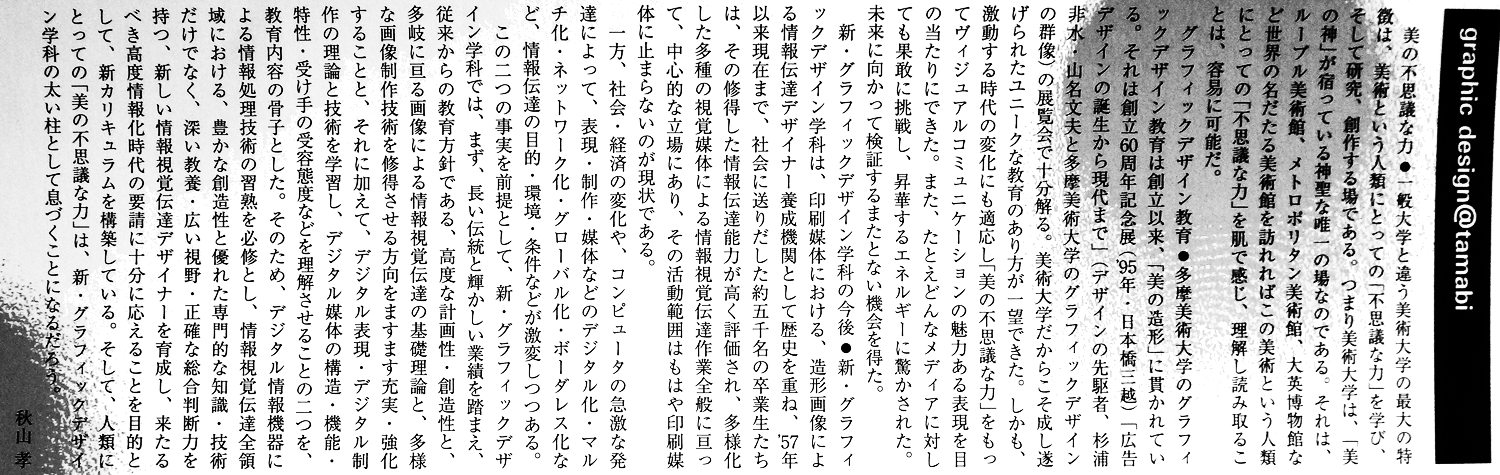 graphic design@tamabi
美の不思議な力●一般大学と違う美術大学の最大の特
徴は、美術という人類にとっての「不思議な力」を学び、
そして研究、創作する場である。つまり美術大学は、「美
の神」が宿っている神聖な唯一の場なのである。それは、
ルーブル美術館、メトロポリタン美術館、大英博物館な
ど世界の名だたる美術館を訪れればこの美術という人類
にとっての「不思議な力」を肌で感じ、理解し読み取るこ
とは、容易に可能だ。
グラフィックデザイン教育●多摩美術大学のグラフィ
ックデザイン教育は創立以来、「美の造形」に貫かれてい
る。それは創立60周年記念展('95年・日本橋三越)「広告
デザインの誕生から現代まで」(デザインの先駆者、杉浦
非水・山名文夫と多摩美術大学のグラフィックデザイン
の群像)の展覧会で十分解る。美術大学だからこそ成し遂
げられたユニークな教育のあり方が一望できた。しかも、
激動する時代の変化にも適応し「美の不思議な力」をもっ
てヴィジュアルコミュニケーションの魅力ある表現を目
の当たりにできた。また、たとえどんなメディアに対し
ても果敢に挑戦し、昇華するエネルギーに驚かされた。
未来に向かって検証するまたとない機会を得た。
新・グラフィックデザイン学科の今後●新・グラフィ
ックデザイン学科は、印刷媒体における、造形画像によ
る情報伝達デザイナー養成機関として歴史を重ね、'57年
以来現在まで、社会に送りだした約五千名の卒業生たち
は、その修得した情報伝達能力が高く評価され、多様化
した多種の視覚媒体による情報視覚伝達作業全般に亘っ
て、中心的な立場にあり、その活動範囲はもはや印刷媒
体に止まらないのが現状である。
一方、社会・経済の変化や、コンピュータの急激な発
達によって、表現・制作・媒体などのデジタル化・マル
チ化・ネットワーク化・グローバル化・ボーダレス化な
ど、情報伝達の目的・環境・条件などが激変しつつある。
この二つの事実を前提として、新・グラフィックデザ
イン学科では、まず、長い伝統と輝かしい業績を踏まえ、
従来からの教育方針である、高度な計画性・創造性と、
多岐に亘る画像による情報視覚伝達の基礎理論と、多様
な画像制作技術を修得させる方向をますます充実・強化
することと、それに加えて、デジタル表現・デジタル制
作の理論と技術を学習し、デジタル媒体の構造・機能・
特性・受け手の受容態度などを理解させることの二つを、
教育内容の骨子とした。そのため、デジタル情報機器に
よる情報処理技術の習熟を必修とし、情報視覚伝達全領
域における、豊かな創造性と優れた専門的な知識・技術
だけでなく、深い教養・広い視野・正確な総合判断力を
持つ、新しい情報視覚伝達デザイナーを育成し、来たる
べき高度情報化時代の要請に十分に応えることを目的と
して、新カリキュラムを構築している。そして、人類に
とっての「美の不思議な力」は、新・グラフィックデザイ
ン学科の太い柱として息づくことになるだろう。
秋山 孝